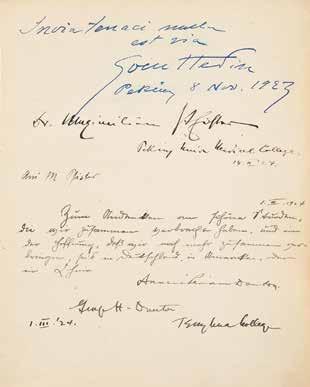 Invia tenaci nulla
est via
Sven Hedin
Peking 8 Nov. 1923
Dr. Maximilian Pfister
Peking Union Medical College.
Ani M Pfister
1. III. 1924
Zum Andenken an schöne Stunden,
die wir zusammen verbracht haben, und in
der Hoffnung, daß wir noch mehr zusammen ver-
bringen, sei's in Deutschland, in Amerika, oder
in China
Annina Periam Danton
George H. Danton
1. III. '24. Tsing Hua College